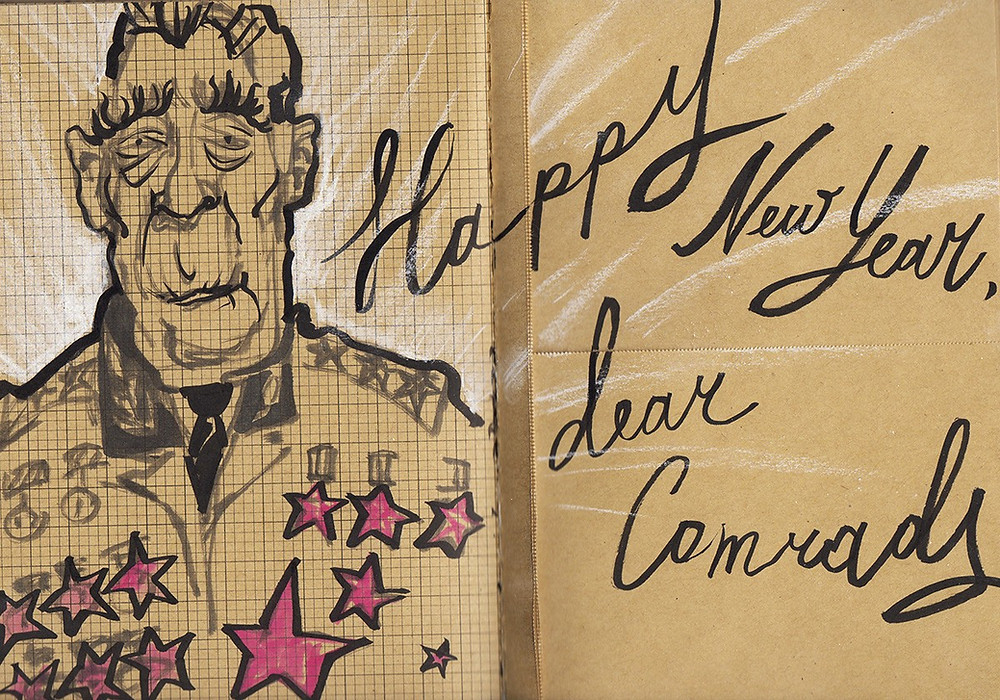 Happy
New Year,
dear
Comrads